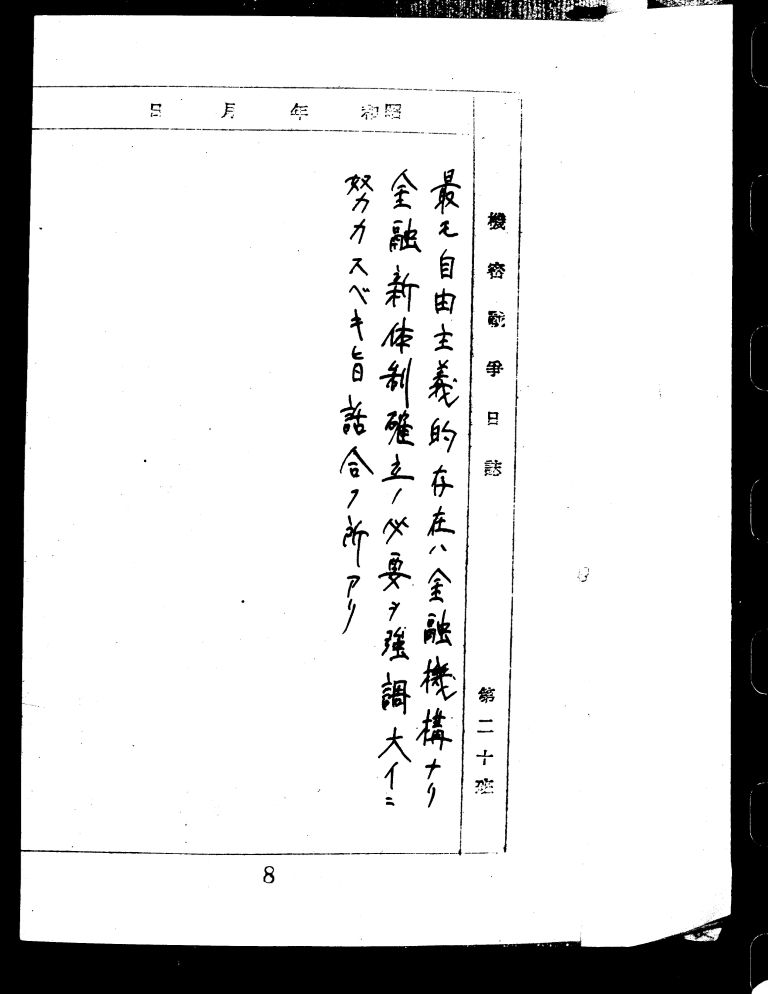 機密戦争日誌 第二十班
昭和 年 月 日
最モ自由主義的存在ハ金融機構ナリ
金融新体制確立ノ必要ヲ強調大イニ
努力スベキ旨話合フ所アリ
8